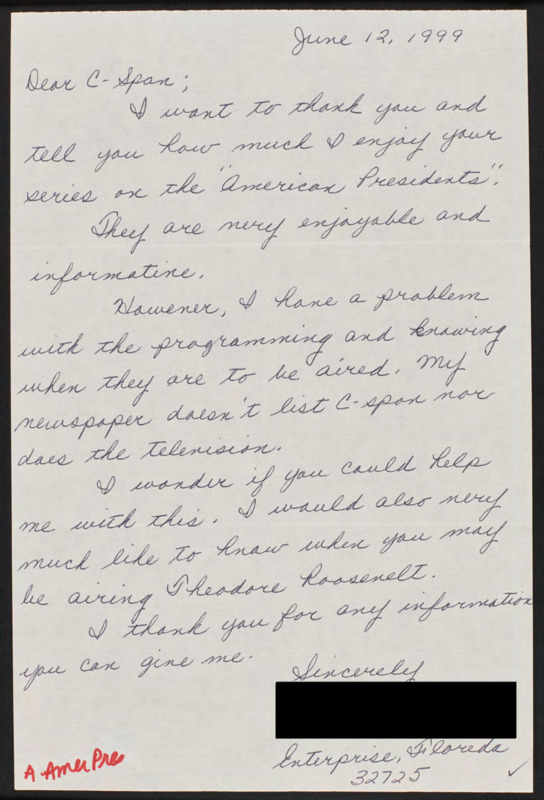 June 12, 1999
Dear C-Span;
I want to thank you and
tell you how much I enjoy your
series on the "American Presidents".
They are very enjoyable and
informative.
However, I have a problem
with the programming and knowing
when they are to be aired. My
newspaper doesn't list C-span nor
does the television.
I wonder if you could help
me with this. I would also very
much like to know when you may
be airing Theodore Roosevelt.
I thank you for any information
you can give me.
Sincerely
Enterprise, Floreda
32725
A AmerPres